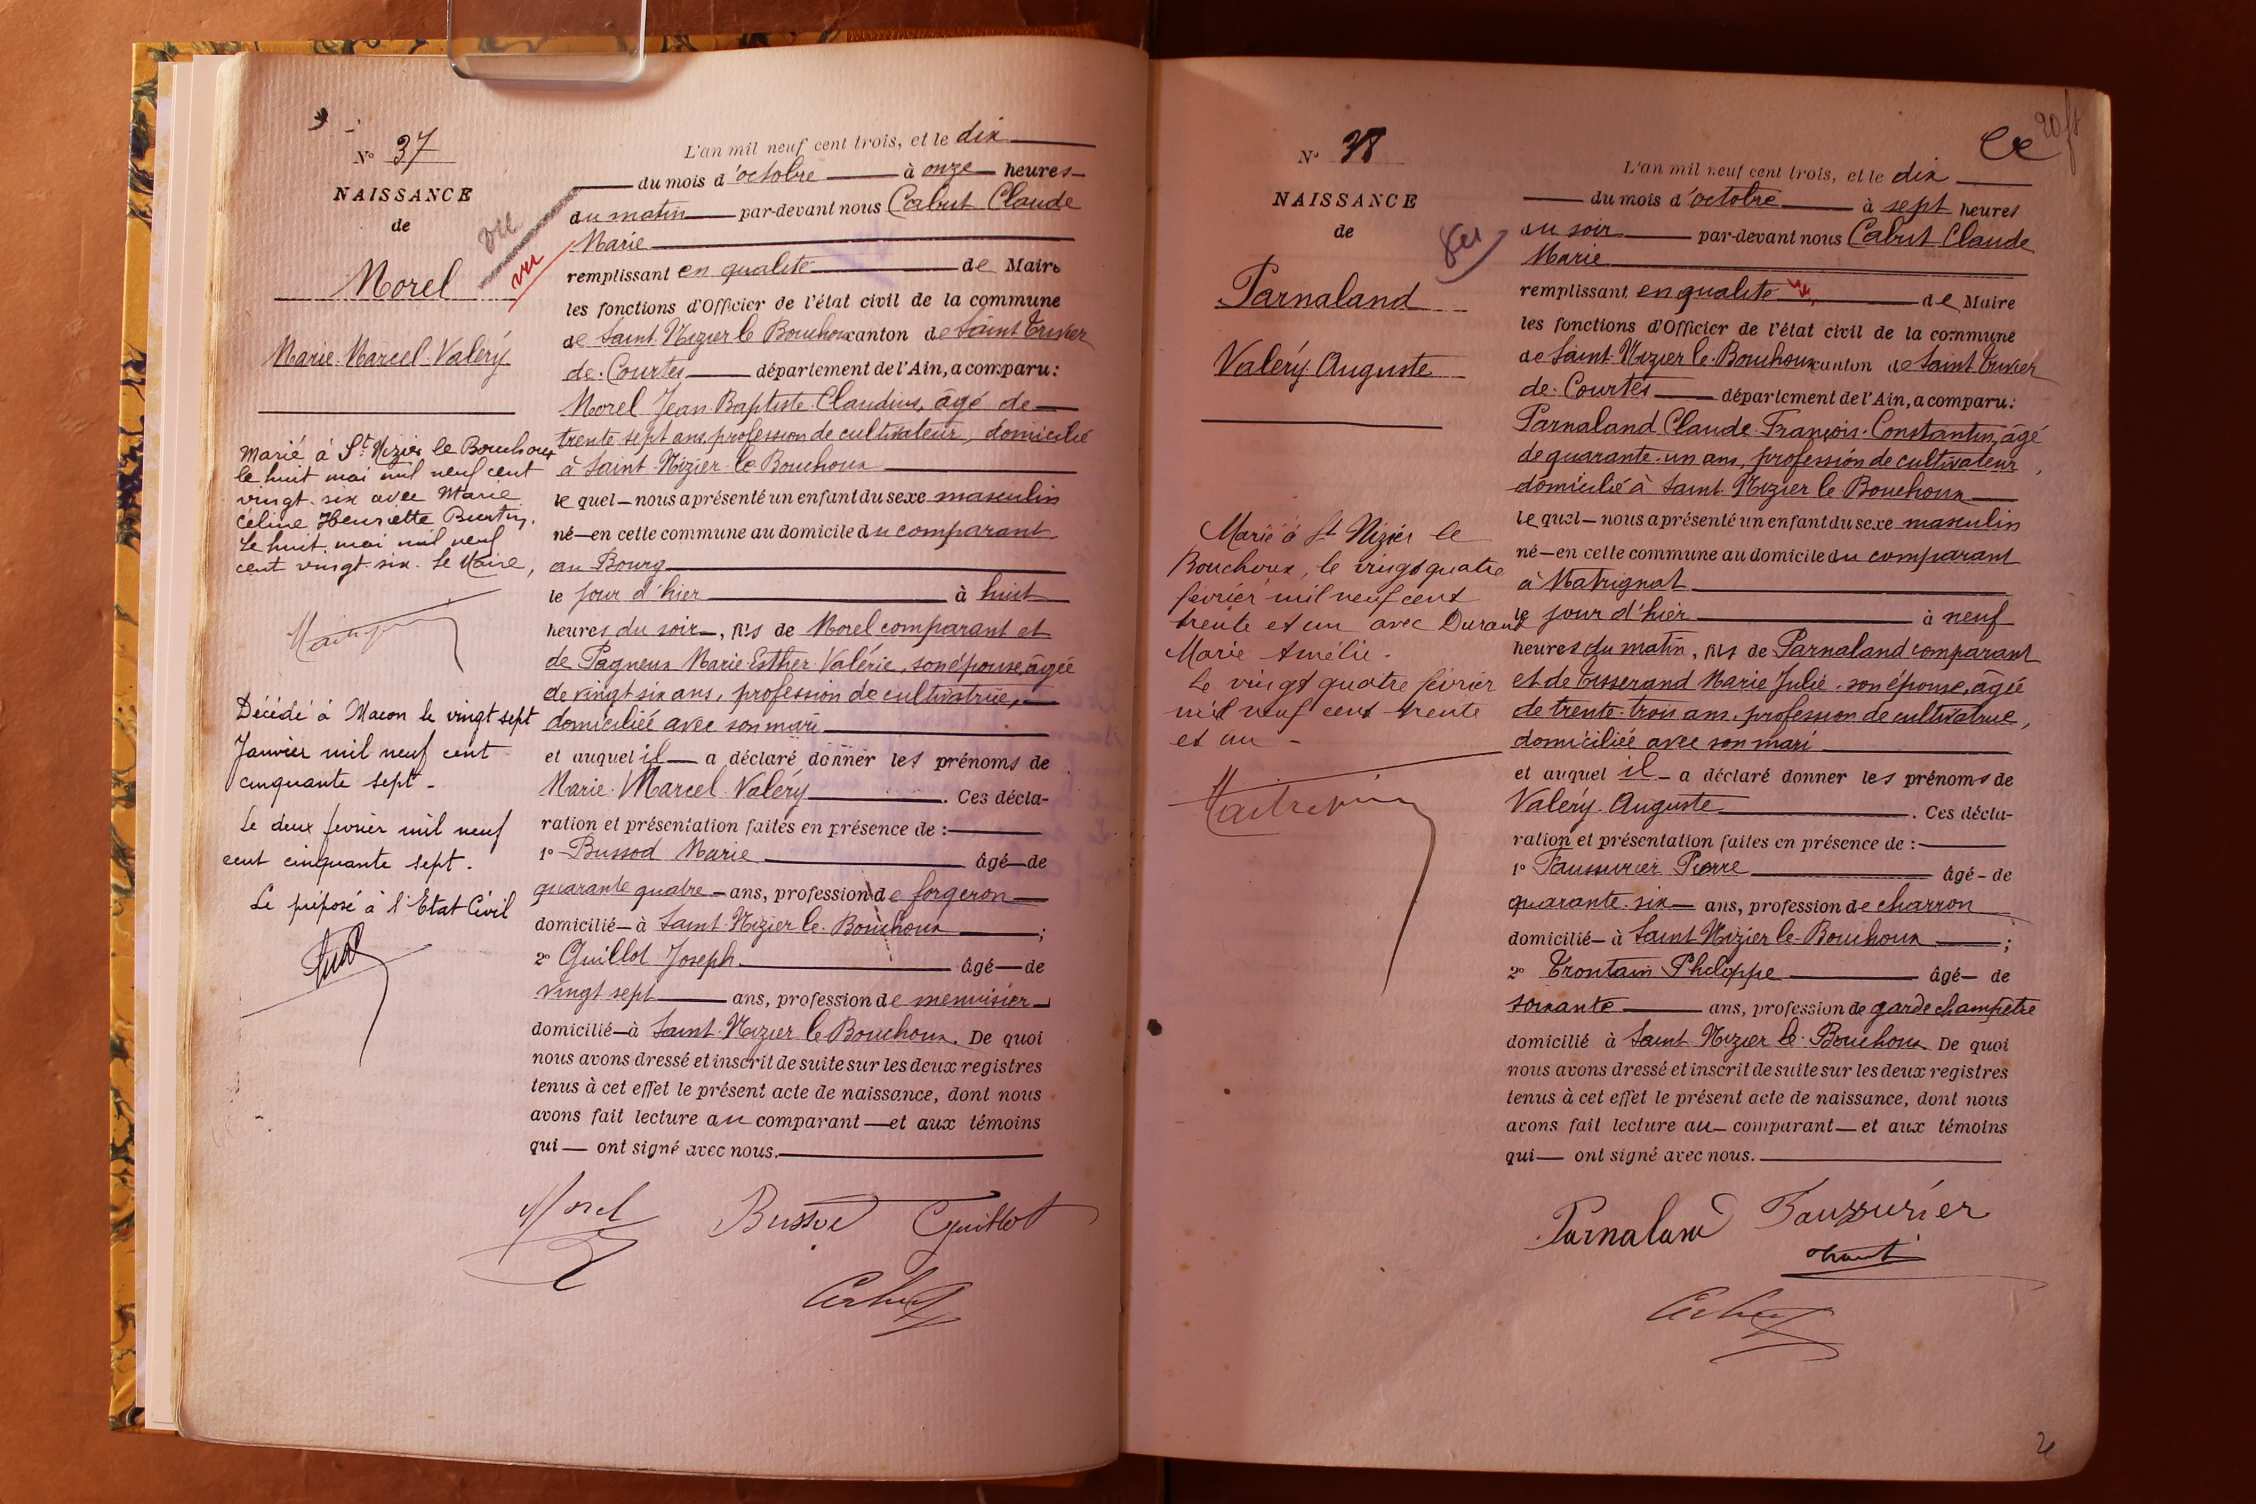 N° 37
NAISSANCE
de
Morel
Marie Marcel Valéry
vu
vu
Marié à St Nizier le Bouchoux
le huit mai mil neuf cent
vingt-six avec Marie
Céline Henriette Burtin.
Le huit mai mil neuf
cent vingt-six. Le Maire,
Décédé à Macon le vingt sept
Janvier mil neuf cent
cinquante sept -
Le deux fevrier mil neuf
cent cinquante sept.
Le préposé à l'Etat Civil
L'an mil neuf cent trois, et le dix
du mois d'octobre à onze heures
du matin par-devant nous Cabut Claude
Marie
remplissant en qualité de Maire
les fonctions d'Officier de l'état civil de la commune
de Saint-Nizier le Bouchoux canton de Saint Trivier
de-Courtes département de l'Ain, a comparu:
Morel Jean-Baptiste-Claudius, âgé de
trente sept ans, profession de cultivateur, domicilié
à Saint-Nizier-le Bouchoux
lequel nous a présenté un enfant du sexe masculin
né en cette commune au domicile du comparant
au Bourg
le jour d'hier à huit
heures du soir, fils de Morel comparant et
de Pagneux Marie-Esther-Valérie, son épouse, âgée
de vingt six ans, profession de cultivatrice,
domiciliée avec son mari
et auquel il a déclaré donner les prénoms de
Marie-Marcel-Valéry. Ces décla-
ration et présentation faites en présence de :
1° Bussod Marie âgé de
quarante quatre ans, profession de forgeron
domicilié à Saint-Nizier le-Bouchoux ;
2° Guillot Joseph âgé de
vingt sept ans, profession de menuisier
domicilié à Saint-Nizier le Bouchoux. De quoi
nous avons dressé et inscrit de suite sur les deux registres
tenus à cet effet le présent acte de naissance, dont nous
avons fait lecture au comparant et aux témoins
qui ont signé avec nous.
Morel Bussod Guillot
Cabut
20 ft
N° 38
NAISSANCE
de
Parnaland
Valéry Auguste
vu
Marié à St Nizier le
Bouchoux, le vingt quatre
février mil neuf cent
trente et un avec Durand
Marie Amélie.
Le vingt quatre février
mil neuf cent trente
et un -
L'an mil neuf cent trois, et le dix
du mois d'octobre à sept heures
du soir par-devant nous Cabut Claude
Marie
remplissant en qualité de Maire
les fonctions d'Officier de l'état civil de la commune
de Saint-Nizier le-Bouchoux canton de Saint Trivier
de-Courtes département de l'Ain, a comparu:
Parnaland Claude-François-Constantin, âgé
de quarante-un ans, profession de cultivateur,
domicilié à Saint-Nizier le Bouchoux
lequel nous a présenté un enfant du sexe masculin
né en cette commune au domicile du comparant
à Matrignat
le jour d'hier à neuf
heures du matin, fils de Parnaland comparant
et de Tisserand Marie Julie, son épouse, âgée
de trente-trois ans, profession de cultivatrice,
domiciliée avec son mari
et auquel il a déclaré donner les prénoms de
Valéry Auguste. Ces décla-
ration et présentation faites en présence de :
1° Faussurier Pierre âgé de
quarante-six ans, profession de charron
domicilié à Saint Nizier le-Bouchoux ;
2° Trontain Philippe âgé de
soixante ans, profession de garde champêtre
domicilié à Saint Nizier le-Bouchoux De quoi
nous avons dressé et inscrit de suite sur les deux registres
tenus à cet effet le présent acte de naissance, dont nous
avons fait lecture au comparant et aux témoins
qui ont signé avec nous.
Parnaland Faussurier
Cabut